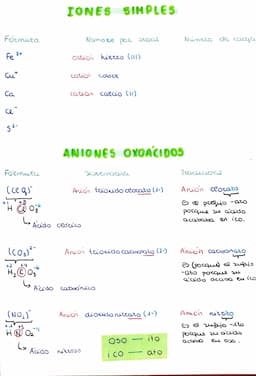 IONES SIMPLES
Fórmula Nombre por stock Número de carga
Fe³⁺ catión hierro (III)
Cu⁺ catión cobre
Ca catión calcio (II)
Cl⁻
S²⁻
ANIONES OXOÁCIDOS
Fórmula Sistemática Tradicional
(ClO₃)⁻ Anión trioxidoclorato (1-) Anión clorato
H Cl O₃ es sufijo -ato
porque su ácido
↳ Ácido clórico acababa en ico.
(CO₃)²⁻ Anión trioxidocarbonato (2-) Anión carbonato
H₂ C O₃ (porque) el sufijo
-ato porque su
↳ Ácido carbónico ácido acaba en ico
(NO₂)⁻ Anión dioxidonitrato (1-) Anión nitrito
H N O₂ es sufijo -ito
porque su ácido
↳ Ácido nitroso acaba en oso.
oso — ito
ico — ato